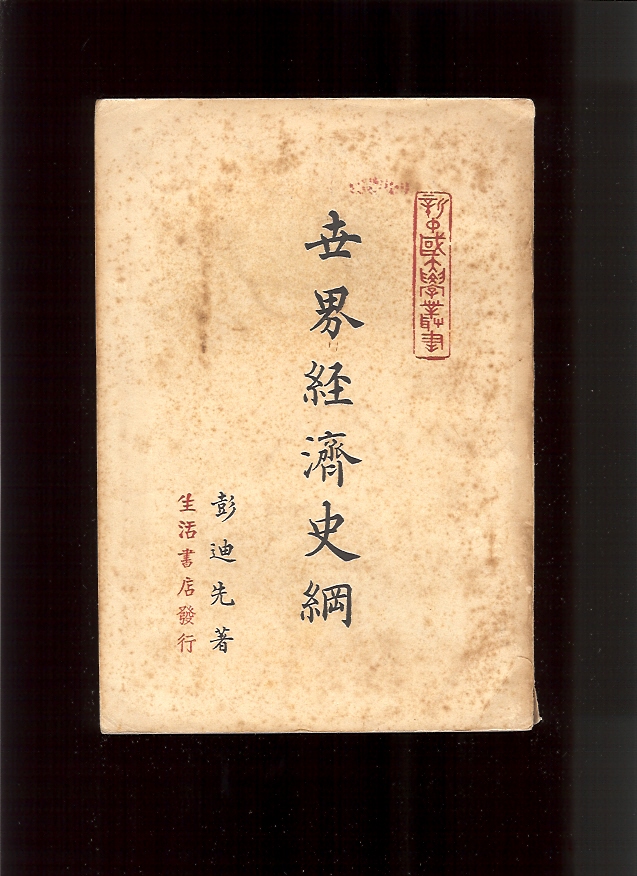 新中國大學叢書
世界経濟史綱
彭迪先著
生活書店發行